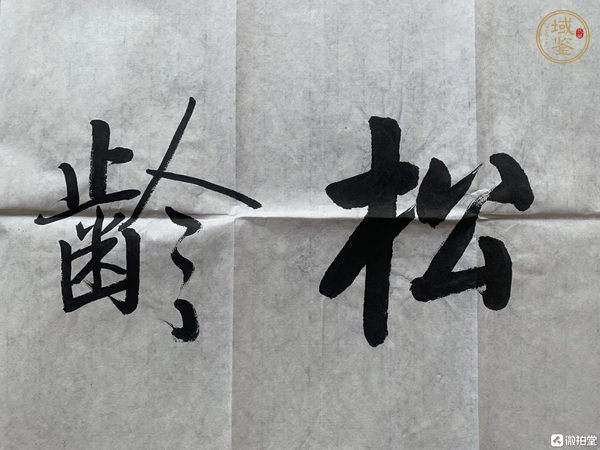 松齡
域鉴
微拍堂